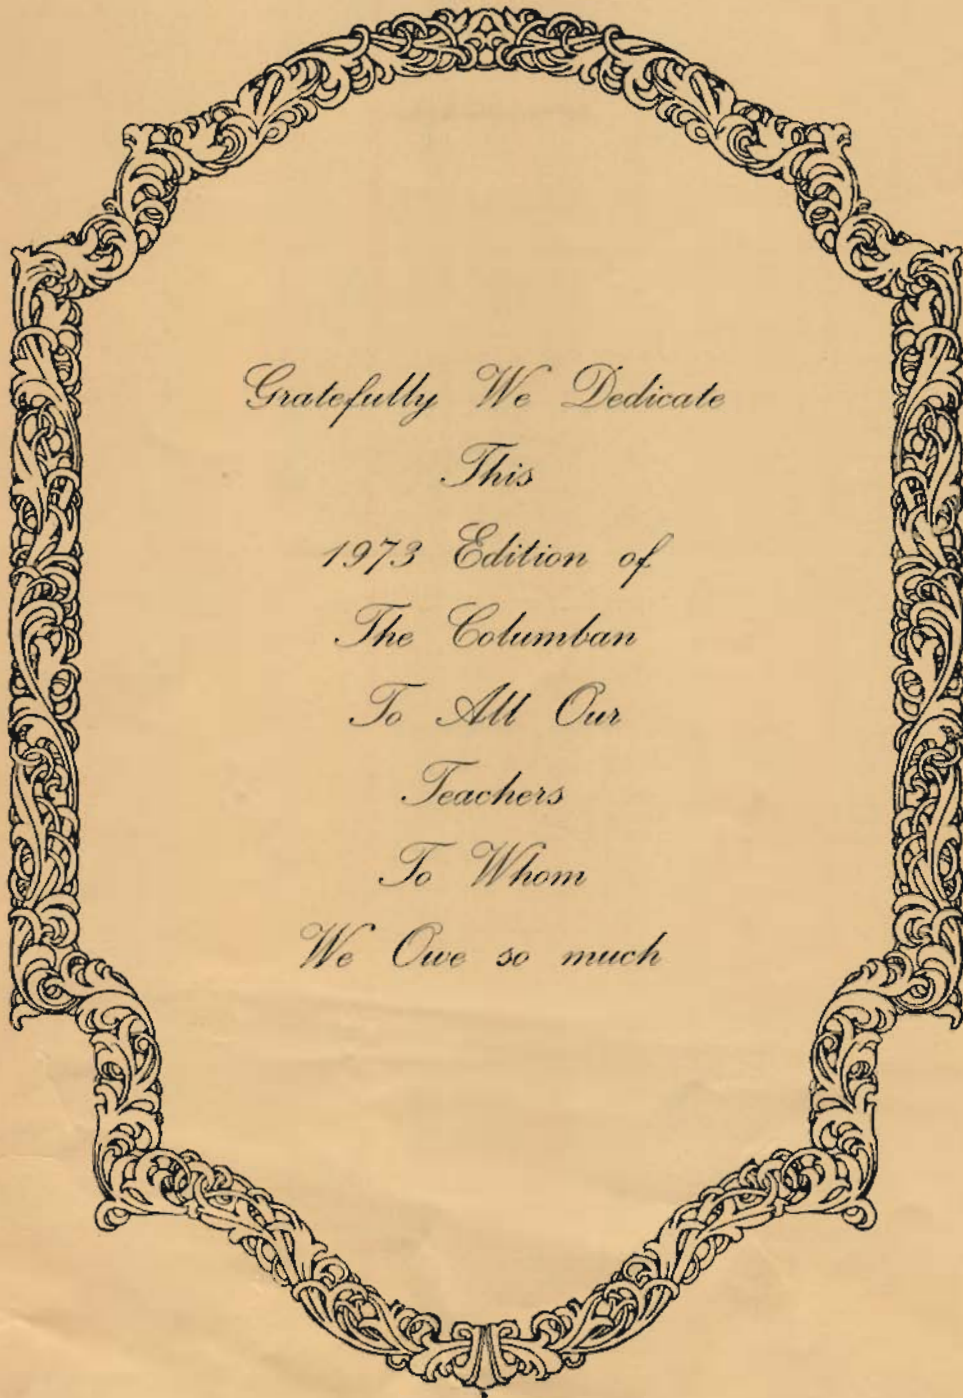 Gratefully We Dedicate
This
1973 Edition of
The Columban
To All Our
Teachers
To Whom
We Owe so much